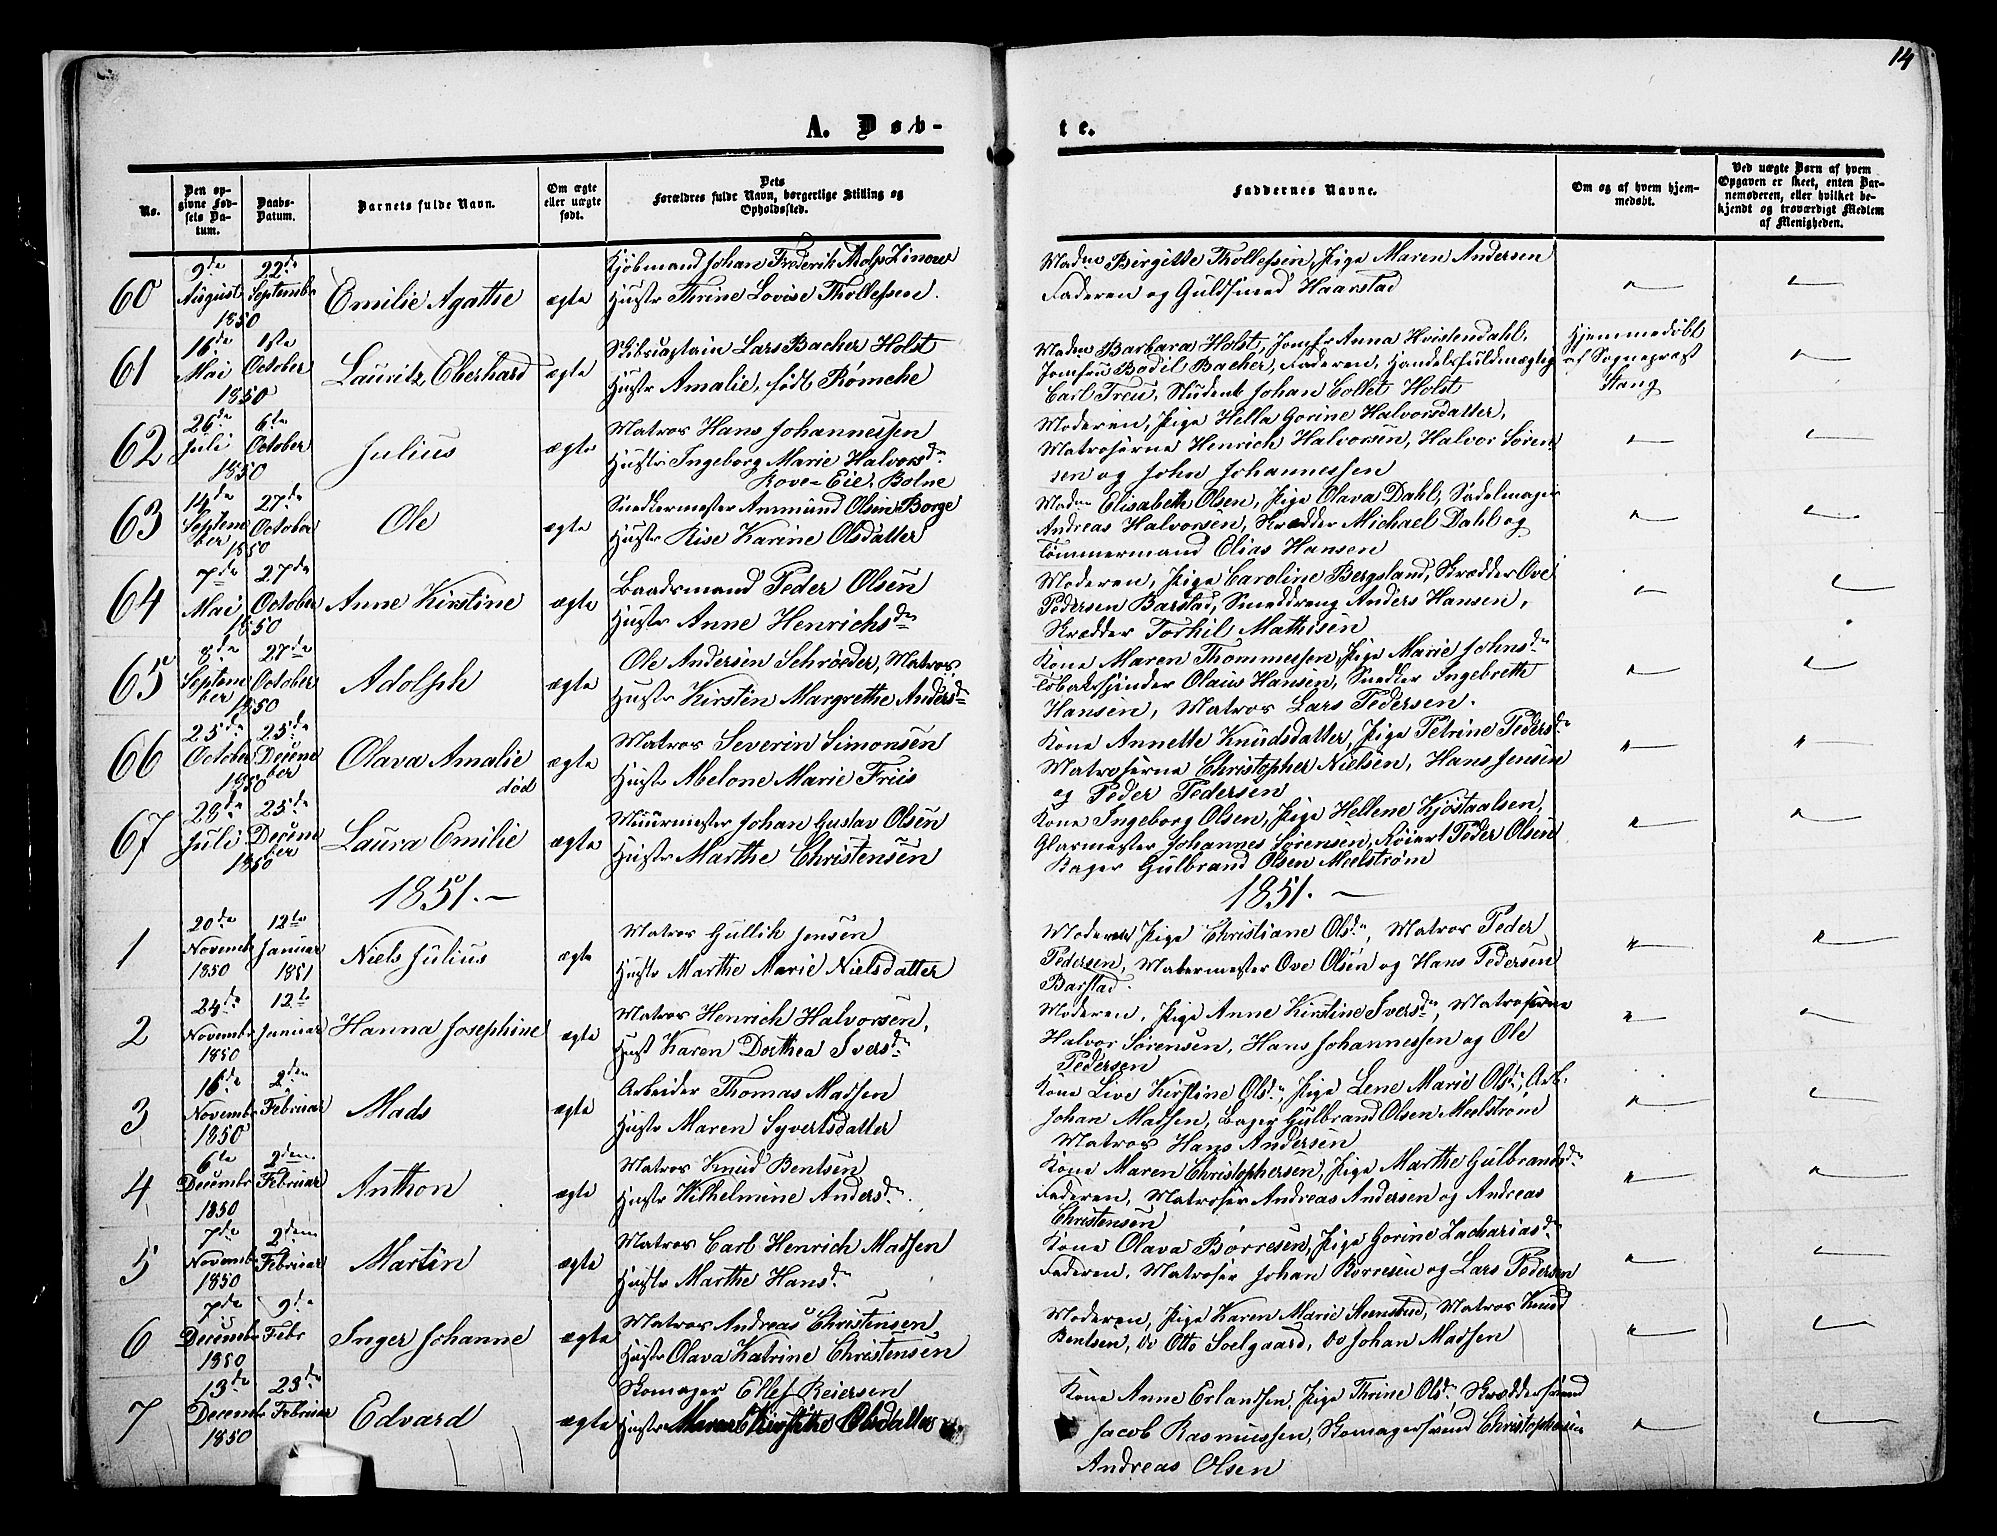 14
A. Døb-
te.
No.
Den op-
givne Fød-
sels Da-
tum.
Daabs-
Datum.
Barnets fulde Navn.
Om ægte
eller uægte
født.
Dets
Forældres fulde Navn, borgerlige Stilling og
Opholdssted.
Faddernes Navne.
Om og af hvem hjem-
medøbt.
Ved uægte Børn af hvem
Opgaven er skeet, enten Bar-
nemoderen, eller hvilket be-
kjendt og troværdigt Medlem
af Menigheden.
60
9de August 1850
22de Septembr
Emilie Agathe
ægte
Kjøbmand Johan Frederik Adolp Linow
Hustr Thrine Lovise Thollefsen.
Madm Birgitte Thollefsen, Pige Maren Andersen
Faderen og Guldsmed Haarstad
61
16de Mai 1850
1ste October
Lauritz Eberhard
ægte
Skibscaptain Lars Bacher Holst
Hustr Amalie, født Rømche
Madm Barbara Holst, Jomfr Anna Hvistendahl,
Jomfru Bodil Bacher, Faderen, Handelsfuldmægtig
Carl Treu, Student Johan Collet Holst
Hjemmedøbt
af Sognepræst
Stang
62
26de Juli 1850
6te October
Julius
ægte
Matros Hans Johannessen
Hustr Ingeborg Marie Halvorsdr
Rove-Eie, Bolne
Moderen, Pige Hella Gorine Halvorsdatter,
Matroserne Henrich Halvorsen, Halvor Søren-
sen og John Johannessen
63
14de September 1850
27de October
Ole
ægte
Snedkermester Ammund Olsen Borge
Hustr Rise Karine Olsdatter
Madm Elisabeth Olsen, Pige Olava Dahl, Sadelmager
Andreas Halvorsen, Skrædder Michael Dahl og
Tømmermand Elias Hansen
64
7de Mai 1850
27de October
Anne Kirstine
ægte
Baadsmand Peder Olsen
Hustr Anne Henrichsdr
Moderen, Pige Caroline Bergsland, Skrædder Ove
Pedersen Barstad, Smeddreng Anders Hansen,
Skrædder Torkil Mathisen
65
8de September 1850
27de October
Adolph
ægte
Ole Andersen Schrøeder, Matros
Hustr Kirstin Margrethe Andersdr
Kone Maren Thommessen, Pige Marie Johnsdr
Tobaksspinder Olaus Hansen, Snedker Ingebreth
Hansen, Matros Lars Pedersen.
66
25de October 1850
25de December
Olava Amalie
død
ægte
Matros Severin Simonsen
Hustr Abelone Marie Friis
Kone Annette Knudsdatter, Pige Petrine Pedersdr
Matroserne Christopher Nielsen, Hans Jensen
og Peder Pedersen
67
28de Juli 1850
25de December
Laura Emilie
ægte
Muurmester Johan Gustav Olsen
Hustr Marthe Christensen
Kone Ingeborg Olsen, Pige Hellene Kjøstaalsen,
Glarmester Johannes Sørensen, Røiert Peder Olsen
Bager Gulbrand Olsen Meelstrøm
1851.
1851.
1
20de Novembr 1850
12te Januar 1851
Niels Julius
ægte
Matros Gullik Jensen
Hustr Marthe Marie Nielsdatter
Moderen Pige Christiane Olsdr, Matros Peder
Pedersen, Malermester Ove Olsen og Hans Pedersen
Barstad.
2
24de Novembr 1850
12te Januar
Hanna Josephine
ægte
Matros Henrich Halvorsen,
Hust Karen Dorthea Iversdr
Moderen, Pige Anne Kirstine Iversdr, Matroserne
Halvor Sørensen, Hans Johannessen og Ole
Pedersen
3
16de Novembr 1850
2den Februar
Mads
ægte
Arbeider Thomas Madsen
Hustr Maren Syvertsdatter
Kone Live Kirstine Olsdr, Pige Lene Marie Olsdr, Arb.
Johan Madsen, Bager Gulbrand Olsen Meelstrøm
Matros Hans Andersen
4
6te Decembr 1850
2den Februar
Anthon
ægte
Matros Knud Bentsen
Hustr Wilhelmine Andersdr
Kone Maren Christophersen, Pige Marthe Gulbrandsdr
Faderen, Matroser Andreas Andersen og Andreas
Christensen
5
7de Novembr 1850
2den Februar
Martin
ægte
Matros Carl Henrich Madsen
Hustr Marthe Hansdr
Kone Olava Børresen, Pige Gorine Zachariasdr
Faderen, Matroser Johan Børresen og Lars Pedersen
6
7de Decembr 1850
9de Febr
Inger Johanne
ægte
Matros Andreas Christensen
Hustr Olava Katrine Christensen
Moderen, Pige Karen Marie Steensrud, Matros Knud
Bentsen, do Otto Soelgaard, do Johan Madsen
7
13de Decembr 1850
23de Februar
Edvard
ægte
Skomager Ellef Reiersen
Hustr Maren Kirstine Olsdatter
Kone Anne Erlandsen, Pige Thrine Olsdr, Skræddersvend
Jacob Rasmussen, Skomagersvend Christophersen
Andreas Olsen